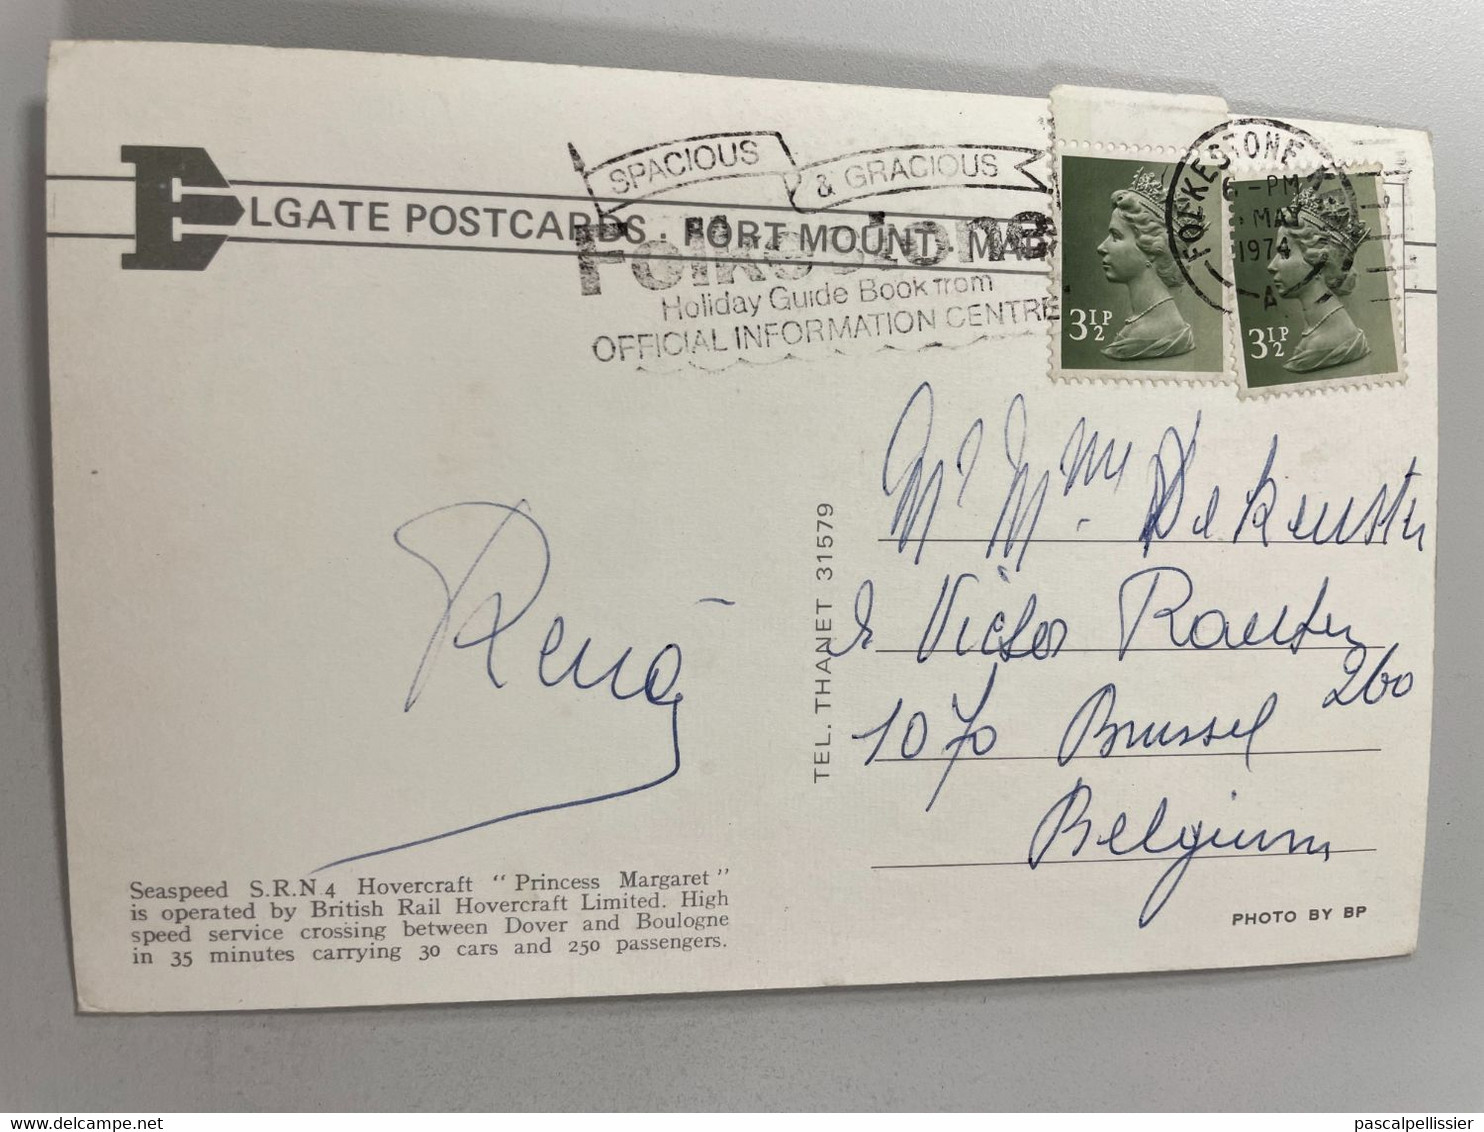 ELGATE POSTCARDS . PORT MOUNT . MAR
SPACIOUS & GRACIOUS
Folkestone
Holiday Guide Book from
OFFICIAL INFORMATION CENTRE
FOLKESTONE
6 - PM
MAY
1974
A
3½P
3½P
TEL. THANET 31579
René
Victor
260
1070 Brussel
Belgium
Seaspeed S.R.N 4 Hovercraft "Princess Margaret"
is operated by British Rail Hovercraft Limited. High
speed service crossing between Dover and Boulogne
in 35 minutes carrying 30 cars and 250 passengers.
PHOTO BY BP
delcampe.net
pascalpellissier